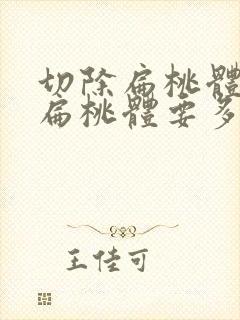 切除扁桃體
扁桃體要多
王佳可